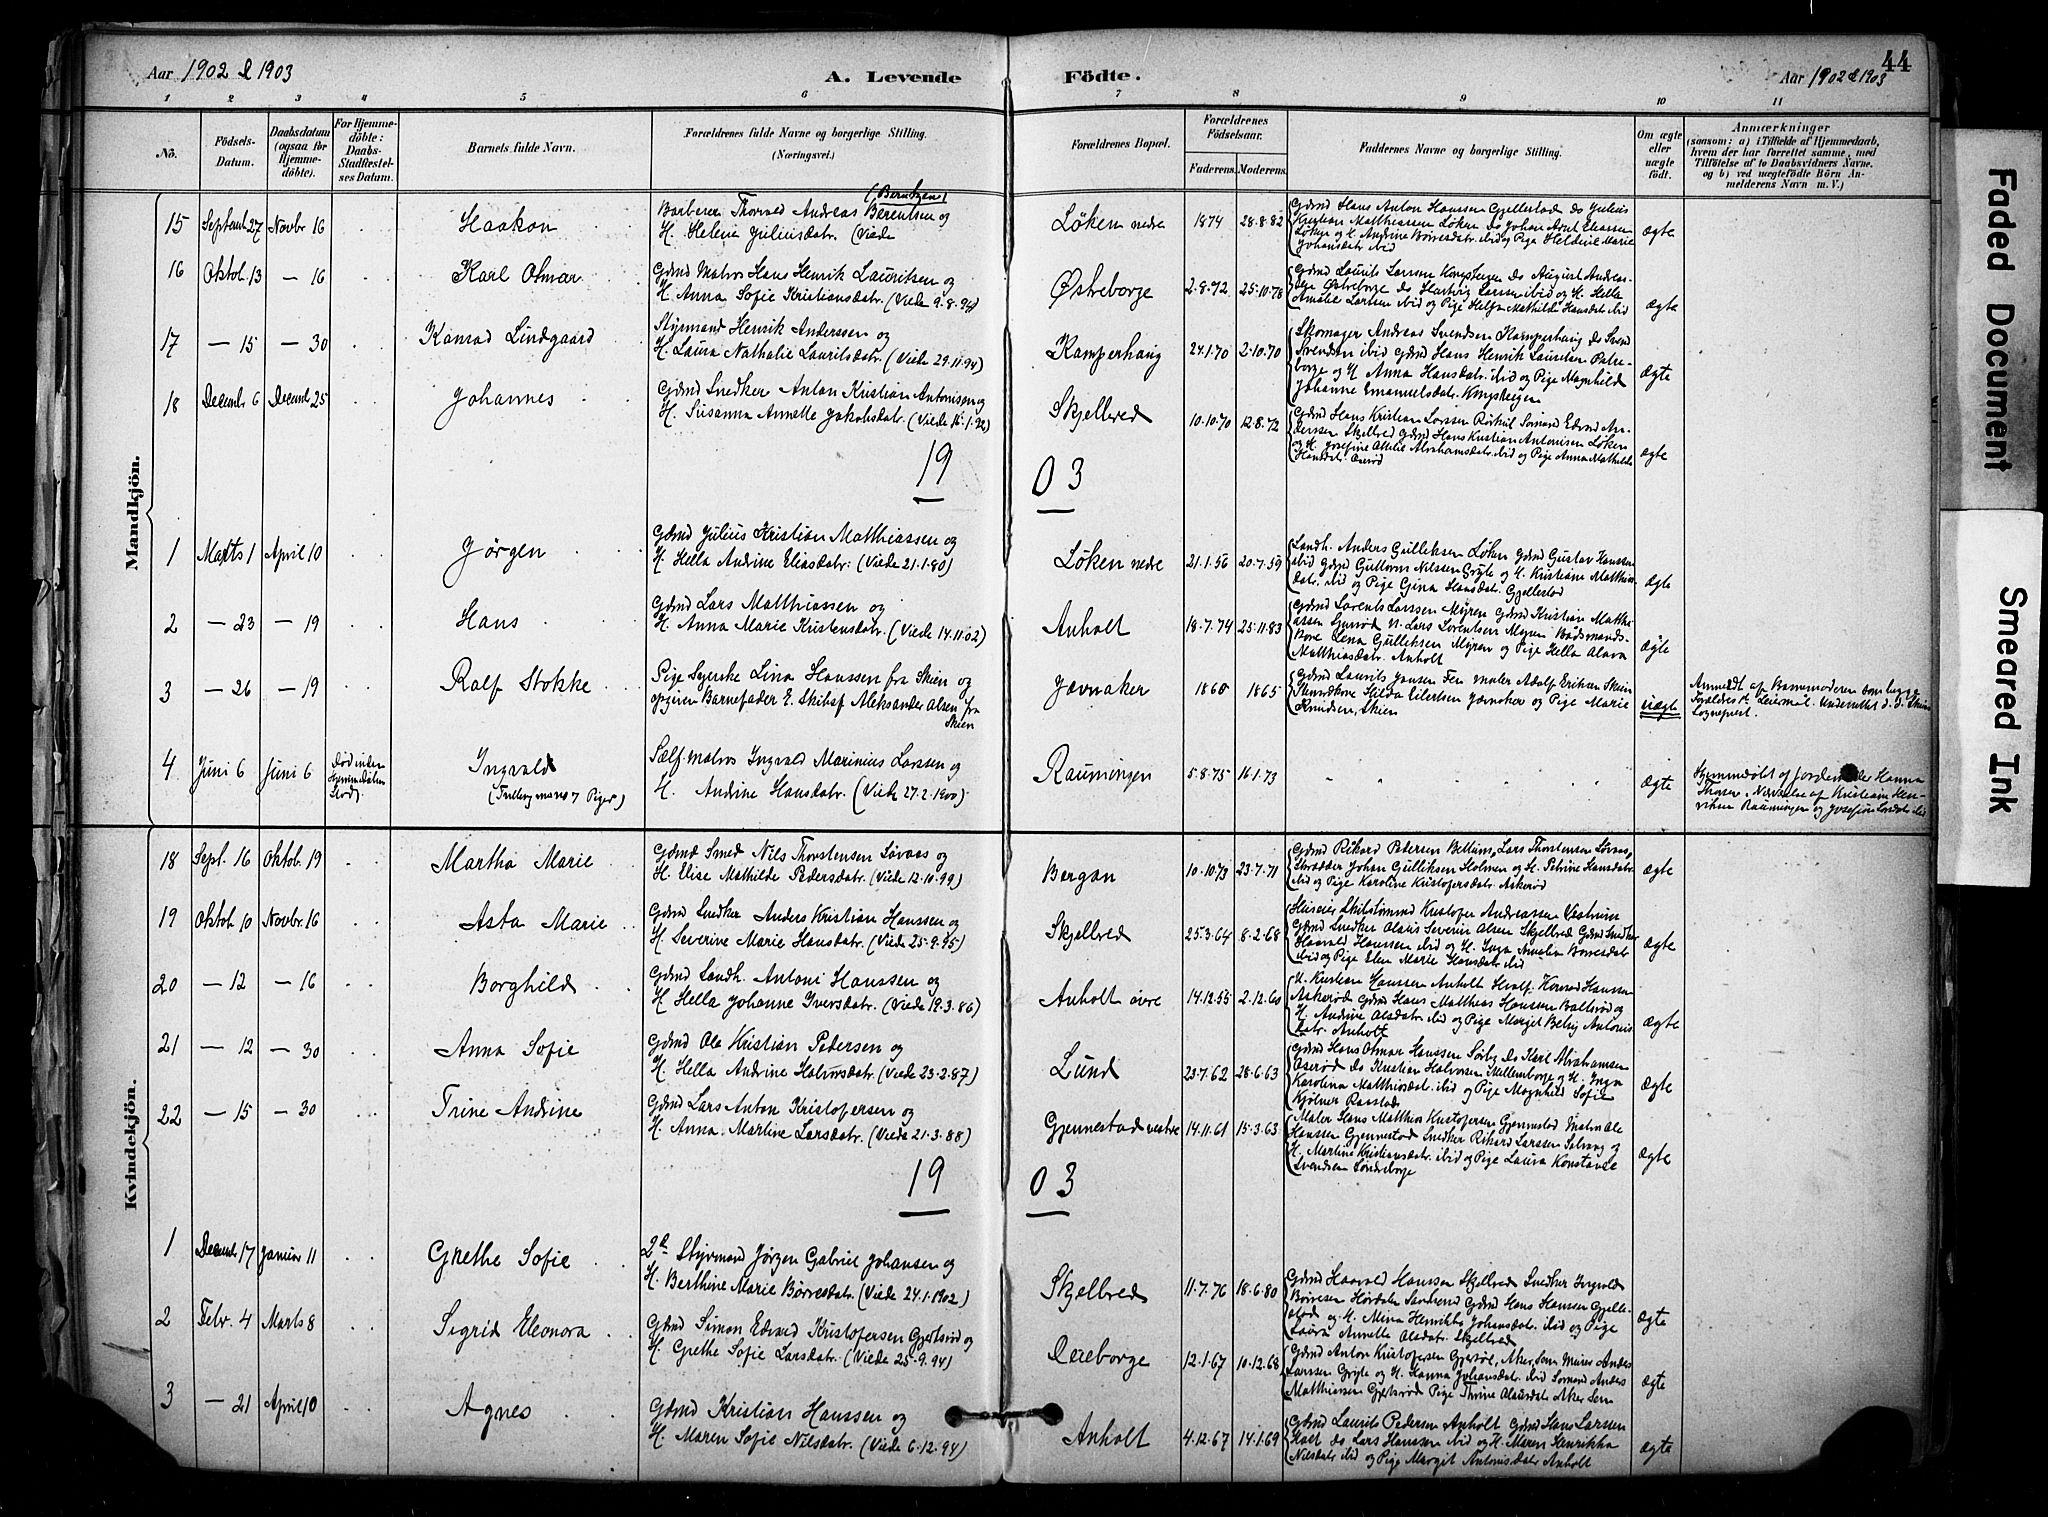 Aar 1902 & 1903
A. Levende
Födte.
Aar 1902 & 1903
44
1 2 3 4 5 6 7 8 9 10 11
No.
Födsels-Datum.
Daabsdatum (ogsaa for Hjemmedöbte).
For Hjemmedöbte: Daabs-Stadfæstelses Datum.
Barnets fulde Navn.
Forældrenes fulde Navne og borgerlige Stilling. (Næringsvei.)
Forældrenes Bopæl.
Forældrenes Födselsaar.
Faderens. Moderens.
Faddernes Navne og borgerlige Stilling.
Om ægte eller uægte födt.
Anmærkninger
(saasom: a) i Tilfælde af Hjemmedaab, hvem der har forrettet samme, med Tilföielse af to Daabsvidners Navne. og b) ved uægtefödte Börn Anmelderens Navn m. V.)
Mandkjön.
15 Septemb 27 Novbr 16 Haakon
(Berntzen)
Barberer Thorvald Andreas Berentsen og
H. Helene Juliusdatr. (Viede
Løken nedre 1874 28.8.82
Gdmd Hans Anton Hanssen Gjellestad do Julius
Kristian Matthiassen Løken do Johan Eliassen
Løken og H. Andrine Børresdatr. ibid og Pige Marie
Johansdatr ibid
ægte
16 Oktob. 13 — 16 Karl Otmar
Gdmd Matros Hans Henrik Lauritsen og
H. Anna Sofie Kristiansdatr. (Viede 9.8.94)
Østreborge 2.8.72 25.10.76
Gdmd Laurits Larssen do August Andreas-
Østreborge do Hartvig Larsen ibid og H. Hella
Amalie Larsen ibid og Pige Helga Mathilde Hansdatr ibid
ægte
17 — 15 — 30 Konrad Lindgaard
Styrmand Henrik Anderssen og
H. Laura Nathalie Lauritsdatr. (Viede 29.11.94)
Kamperhaug 24.1.70 2.10.70
Skomager Andreas Svendsen Kamperhaug do Svend
Svendsen ibid Gdmd Hans Henrik Lauritsen
borge og H. Anna Hansdatr. ibid og Pige Magnhild
Johanne Emanuelsdatr.
ægte
18 Decemb 6 Decemb 25 Johannes
Gdmd Snedker Anton Kristian Antonisen og
H. Susanna Annette Jakobsdatr. (Viede 15.1.92)
Skjellred 10.10.70 12.8.72
Gdmd Hans Kristian Larssen Sømd Edvard An-
derssen Skjellred Gdmd Hans Kristian Antonisen Løken
og H. Josefine Otelie Abrahamsdatr. ibid og Pige Anna Mathilde
Hansdatr. Oserød
ægte
19 03
1 Marts 1 April 10 Jørgen
Gdmd Julius Kristian Matthiassen og
H. Hella Andrine Eliasdatr: (Viede 21.1.80)
Løken nedre 21.1.56 20.7.59
Landh. Anders Gulliksen Løken Gdmd Gustav Hanssen
ibid Gdmd Guttorm Nilssen Gryte og H. Kristiane Matthias-
datr. ibid og Pige Gina Hansdatr. Gjellestad
ægte
2 — 23 — 19 Hans
Gdmd Lars Matthiassen og
H. Anna Marie Kristensdatr. (Viede 14.11.02)
Anholt 18.7.74 25.11.83
Gdmd Lorents Larssen Myren Gdmd Kristian Matthi-
assen U. Lars Lorentsen Myren Bådsmands-
kone Lena Gulliksen Myren og Pige Hella Olava
Matthiasdatr. Anholt
ægte
3 — 26 — 19 Ralf Stokke
Pige Syerske Lina Hanssen fra Skien og
opgiven Barnefader E. Skibsf Aleksander Olsen fra
Skien
Jevnaker 1860 1865
Gdmd Laurits Jansen Fen maler Adolf Eriksen Skien
Hilda Eilertsen Jevnaker og Pige Marie
Knudsen, Skien
uægte
Anmeldt af Barnemoderen som
Forældres Leiermål. Underrettet d. d. Skiens
Sogneprest.
4 Juni 6 Juni 6
Død inden
Hjemmedåben
Stadf.
Ingvald
(Tvilling mans 7 Piger)
Sælf. matros Ingvald Marinius Larssen og
H. Andrine Hansdatr. (Viede 27.2.1900)
Rauningen 5.8.75 16.1.73
ægte
Hjemmedøbt af Jordemoder Hanna
Nærværelse af Kristian Hen-
riksen Rauningen og Josefine Larsdatr ibid
Kvindekjön.
18 Sept. 16 Oktob. 19 Martha Marie
Gdmd Smed Nils Thorstensen Søvaas og
H. Elise Mathilde Pedersdatr. (Viede 12.10.99)
Bergan 10.10.73 23.7.71
Gdmd Rikard Pedersen Bettum, Lars Thorstensen Søvaas,
Skrædder Johan Gulliksen Holmen og H. Petrine Hansdatr.
ibid og Pige Karoline Kristofersdatr. Askerød
ægte
19 Oktob. 10 Novbr. 16 Asta Marie
Gdmd Snedker Anders Kristian Hanssen og
H. Severine Marie Hansdatr. (Viede 25.9.95)
Skjellred 25.3.64 8.2.68
Huseier Skibstømmd Kristofer Andreassen Vestrum
Gdmd Snedker Olaus Severin Olsen Skjellred Gdmd Snedker
Haavald Hanssen ibid og H. Inga Amalie Børresdatr
ibid og Pige Elen Marie Hansdatr. ibid
ægte
20 — 12 — 16 Borghild
Gdmd Landh. Antoni Hanssen og
H. Hella Johanne Iversdatr. (Viede 19.3.86)
Anholt øvre 14.12.55 2.12.60
U. Kristian Hanssen Anholt Hvalf. Konrad Hanssen
Askerød Gdmd Hans Matthias Hanssen Baltsrød og
H. Andrine Olsdatr. ibid og Pige Margit Betzy Antonis-
datr. Anholt
ægte
21 — 12 — 30 Anna Sofie
Gdmd Ole Kristian Pedersen og
H. Hella Andrine Halvorsdatr. (Viede 23.2.87)
Lund 23.7.62 28.6.63
Gdmd Hans Otmar Hanssen Sørby do Karl Abrahamsen
Oserød do Kristian Halvorsen Mellemborge og H. Inga
Karolina Matthiasdatr. ibid og Pige Magnhild Sofie
Kjølner Raastad
ægte
22 — 15 — 30 Trine Andrine
Gdmd Lars Anton Kristofersen og
H. Anna Martine Larsdatr. (Viede 21.3.88)
Gjennestad vestre 14.11.61 15.3.63
Maler Hans Matthias Kristofersen Gjennestad Matros Ole
Hanssen Gjennestad Snedker Rikard Larssen Solvang og
H. Martine Kristiansdatr. ibid og Pige Laura Konstanse
Svendsen Søndreborge
ægte
19 03
1 Decemb 17 Januar 11 Grethe Sofie
2d Styrmand Jørgen Gabriel Johansen og
H. Berthine Marie Børresdatr. (Viede 24.1.1902)
Skjellred 11.7.76 18.6.80
Gdmd Haavald Hanssen Skjellred Snedker Ingvald
Børresen Hørdalen Sandherred Gdmd Hans Hanssen Gjelle-
stad og H. Mina Henrikke Johansdatr. ibid og Pige
Laura Annette Olsdatr. Skjellred
ægte
2 Febr. 4 Marts 8 Sigrid Eleonora
Gdmd Simon Edvard Kristofersen Gjertsrød og
H. Grethe Sofie Larsdatr. (Viede 25.9.94)
12.1.67 10.12.68
Gdmd Anton Kristofersen Gjertsrød, Aker, Sem Murer Anders
Larssen Gryte og H. Hanna Johansdatr. ibid Sømand Anders
Matthiassen Gjertsrød Pige Thrine Olausdatr Aker Sem
ægte
3 — 21 April 10 Agnes
Gdmd Kristian Hanssen og
H. Maren Sofie Nilsdatr. (Viede 6.12.94)
Anholt 4.12.67 14.1.69
Gdmd Laurits Pedersen Anholt Gdmd Hans Larssen
do Lars Hanssen ibid og H. Maren Henrikka
Nilsdatr ibid og Pige Margit Antonisdatr Anholt
ægte
Faded Document
Smeared Ink